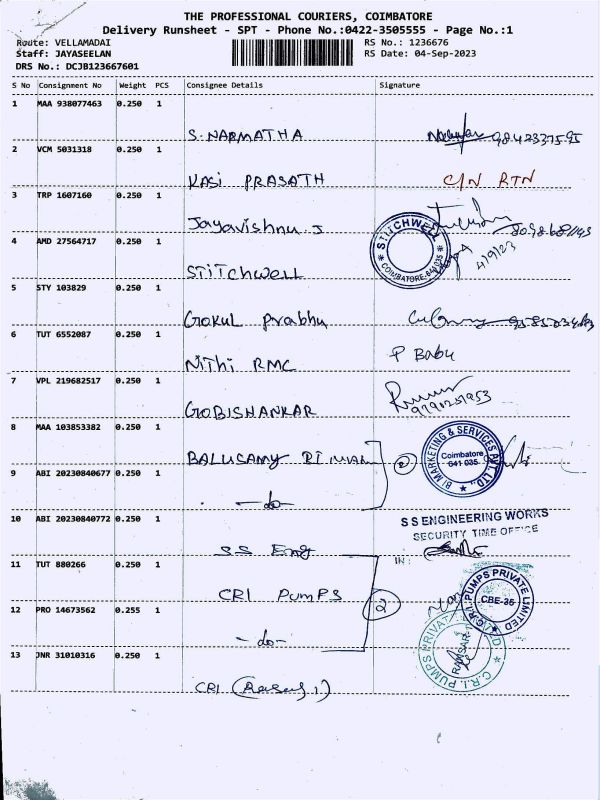 THE PROFESSIONAL COURIERS, COIMBATORE
Delivery Runsheet - SPT - Phone No.:0422-3505555 - Page No.:1
Route: VELLAMADAI RS No.: 1236676
Staff: JAYASEELAN RS Date: 04-Sep-2023
DRS No.: DCJB123667601
S No Consignment No Weight PCS Consignee Details Signature
1 MAA 938077463 0.250 1
S. NARMATHA
2 VCM 5031318 0.250 1
KASI PRASATH C/N RTN
3 TRP 1607160 0.250 1
Jayavishnu J
4 AMD 27564717 0.250 1
STITCHWELL COIMBATORE-641 035
Stitchwell 4/9/23
5 STY 103829 0.250 1
Gokul Prabhu
6 TUT 6552087 0.250 1
Nithi RMC P Babu
7 VPL 219682517 0.250 1
GOBISHANKAR
8 MAA 103853382 0.250 1
BALUSAMY 2 BI MARKETING & SERVICES PVT. LTD. Coimbatore 641 035
9 ABI 20230840677 0.250 1
-do-
10 ABI 20230840772 0.250 1
S S ENGINEERING WORKS
SECURITY TIME OFFICE
SS Eng
IN:
11 TUT 880266 0.250 1
CRI PUMPS 2 C.R.I. PUMPS PRIVATE LIMITED CBE-35
12 PRO 14673562 0.255 1
-do-
C.R.I. PUMPS PRIVATE LIMITED
13 JNR 31010316 0.250 1
CRI